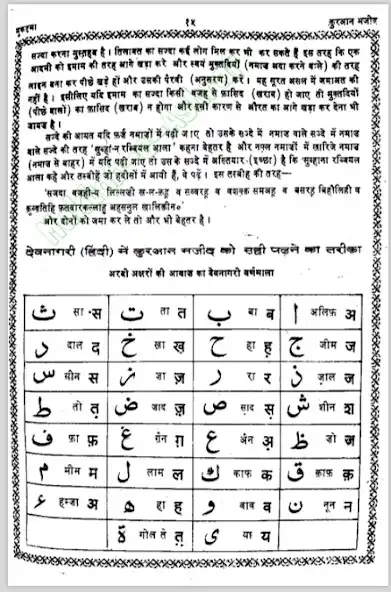 मुक़द्दमा १५ क़ुरआन मजीद
सज्दा करना मुस्तहब है। तिलावत का सज्दा कई लोग मिल कर भी कर सकते हैं इस तरह कि एक
आदमी को इमाम की तरह आगे खड़ा करें और स्वयं मुक़्तदियों (नमाज़ अदा करने वाले) की तरह
लाइन बना कर पीछे खड़े हों और उसकी पैरवी (अनुसरण) करें। यह सूरत असल में जमाअत की
नहीं है। इसीलिए यदि इमाम का सज्दा किसी वजह से फ़ासिद (खराब) हो जाए तो मुक़्तदियों
(पीछे वालों) का फ़ासिद (खराब) न होगा और इसी कारण से औरत का आगे खड़ा कर देना भी
जायज़ है।
सज्दे की आयत यदि फ़र्ज़ नमाज़ों में पढ़ी जाए तो उसके सज्दे में नमाज़ वाले सज्दे में नमाज़
वाले सज्दे की तरह 'सुब्हा-न रब्बियल अला' कहना बेहतर है और नफ़्ल नमाज़ों में ख़ारिजे नमाज़
(नमाज़ से बाहर) में यदि पढ़ी जाए तो उसके सज्दे में अख़्तियार (इच्छा) है कि 'सुब्हाना रब्बियल
अला कहें और तस्बीहें जो हदीसों में आयी हैं, वे पढ़ें। इस तस्बीह की तरह—
'सजदा वजही-य लिल्लज़ी ख़-ल-क़हू व सव्वरहू व शक़्क़ समअहू व बसरहू बिहौलिही व
क़ुव्वतिही फ़तबारकल्लाहु अहसनुल ख़ालिक़ीन०'
और दोनों को जमा कर ले तो और भी बेहतर है।
देवनागरी (हिंदी) में क़ुरआन मजीद को सही पढ़ने का तरीक़ा
अरबी अक्षरों की आवाज़ का देवनागरी वर्णमाला
ث सा स ت ता त ب बा ब ا अलिफ़ अ
د दाल द خ ख़ा ख़ ح हा ह ج जीम ज
س सीन स ز ज़ा ज़ ر रा र ذ ज़ाल ज
ط तो त़ ض ज़ाद ज़ ص साद स़ ش शीन श
ف फ़ा फ़ غ ग़ैन ग़ ع अ़ैन अ़ ظ ज़ो ज
م मीम म ل लाम ल ك काफ क ق क़ाफ़ क़
ء हम्ज़ा अ ه हा ह و वाव व ن नून न
ة गोल ते त़ ى या य